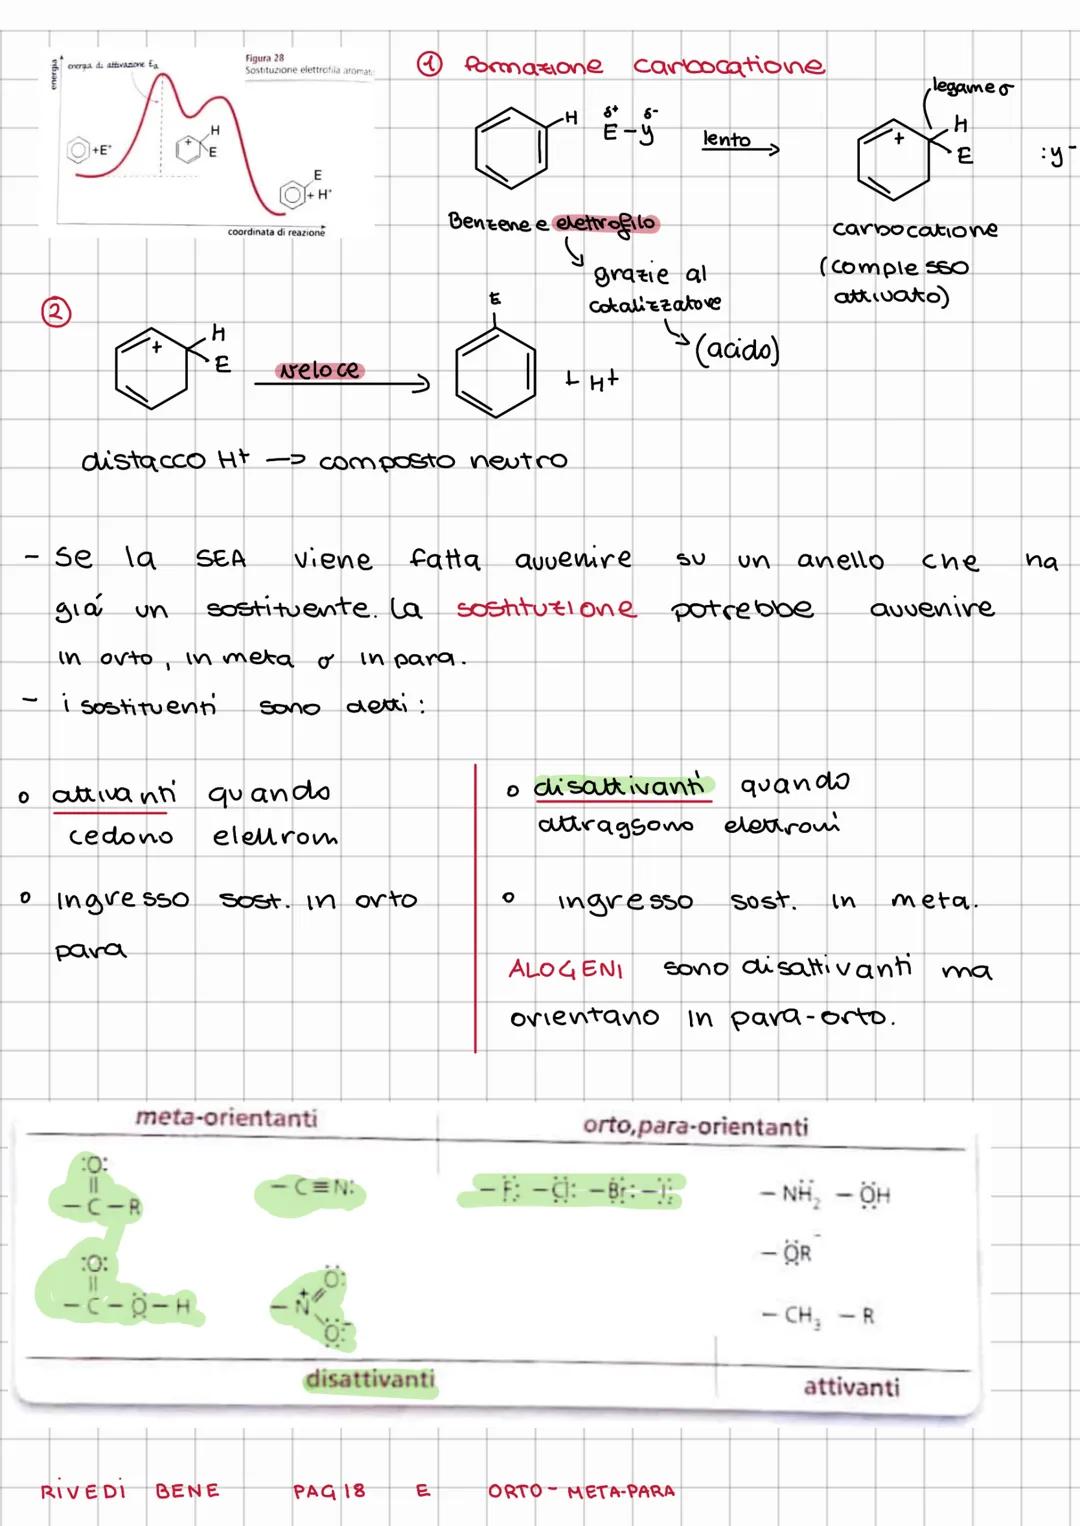 Figura 28
Sostituzione elettrofila aromat
energia
energia di attivazione Ea
+E⁺
+
H
E
E
+ H⁺
coordinata di reazione
① Formazione carbocatione
H
δ+ δ-
E-y
lento
legame σ
+
H
E
:y⁻
Benzene e elettrofilo
carbocatione
(complesso
attivato)
grazie al
catalizzatore
(acido)
②
+
H
E
veloce
E
+ H+
distacco H+ —> composto neutro
- Se la SEA viene fatta avvenire su un anello che ha
già un sostituente. La sostituzione potrebbe avvenire
in orto, in meta o in para.
- i sostituenti sono detti:
o attivanti quando
cedono elettroni
o Ingresso sost. in orto
para
o disattivanti quando
attraggono elettroni
o ingresso sost. in meta.
ALOGENI sono disattivanti ma
orientano in para-orto.
meta-orientanti
orto,para-orientanti
:O:
||
-C-R
-C≡N:
-F: -Cl: -Br: -I:
-NH₂ -ÖH
-ÖR
:O:
||
-C-Ö-H
-N⁺
O:
:O:⁻
-CH₃ -R
disattivanti
attivanti
RIVEDI BENE PAG 18 E ORTO-META-PARA